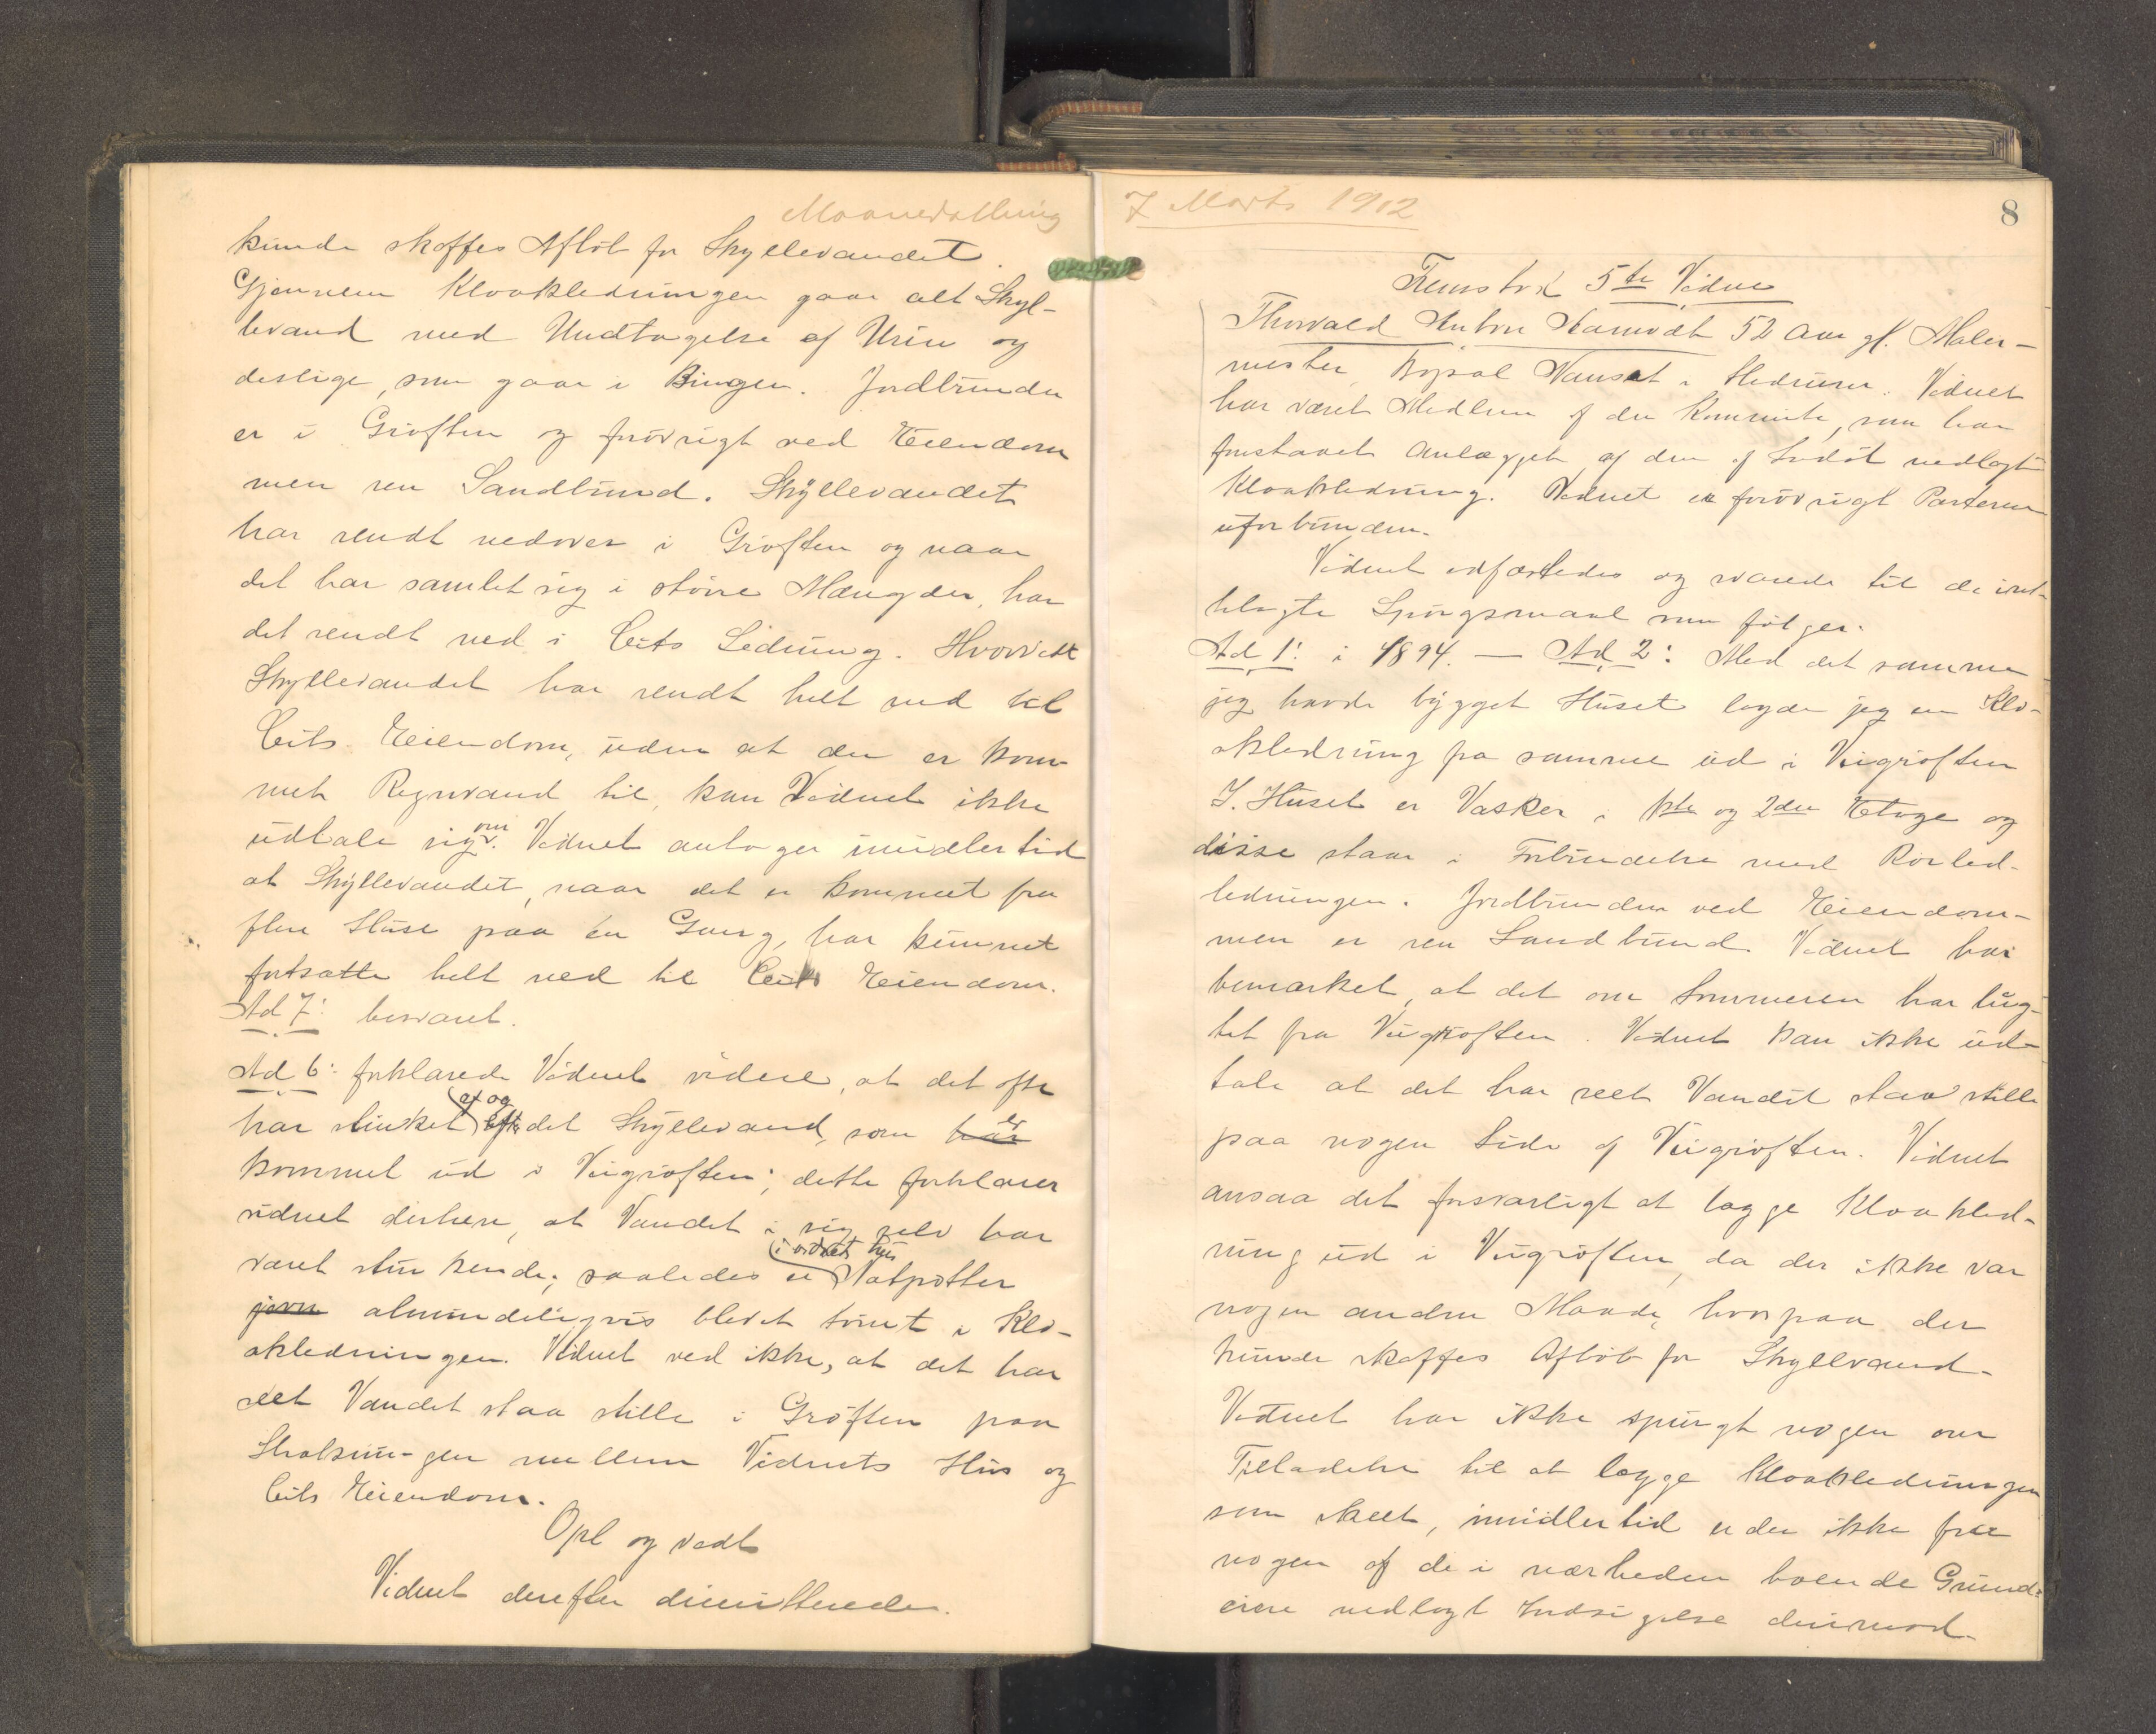 Maanedsthing
kunde skaffes Afløb for Skyllevandet.
Gjennem Kloakledningen gaar alt Skyl-
levand med Undtagelse af Urin og
deslige, som gaar i Bingen. Jordbunden
er i Grøften og forøvrigt ved Eiendom
men ren Sandbund. Skyllevandet
har rendt nedover i Grøften og naar
det har samlet sig i større Mængder, har
det rendt ned i Ledning. Hvorvidt
Skyllevandet har rendt helt ned til
Eiendom, uden at der er kom-
met Regnvand til, kan Vidnet ikke
udtale sig om. Vidnet antager imidlertid
at Skyllevandet, naar det er kommet fra
flere Huse paa en Gang, har kunnet
fortsætte helt ned til Eiendom.
Ad 7: besvaret.
Ad 6: forklarede Vidnet videre, at det ofte
har stinket af og efter det Skyllevand, som har er
kommet ud i Veigrøften; dette forklarer
vidnet derhen, at Vandet i sig selv har
været stinkende; saaledes er i vidnets hus Natpotter
jevn almindeligvis blevet tømt i Klo-
akledningen. Vidnet ved ikke, at det har
seet Vandet staa stille i Grøften paa
Strækningen mellem Vidnets Hus og
Eiendom.
Opl og vedt
Vidnet derefter dimitteredes.
7 Marts 1912
8
Fremstod 5te Vidne
Thorvald Anton 52 Aar gl. Maler-
mester, Bopæl Nanset i Hedrum. Vidnet
har været Medlem af den Kommite, som har
forestaaet Anlægget af den af nedlagte
Kloakledning. Vidnet er forøvrigt Parterne
uforbunden.
Vidnet edfæstedes og svarede til de ind-
tilagte Spørgsmaal som følger.
Ad 1: i 1894. — Ad 2: Med det samme
jeg havde bygget Huset lagde jeg en Klo-
akledning fra samme ud i Veigrøften
I Huset er Vasker i 1ste og 2den Etage og
disse staar i Forbindelse med Rørled-
ledningen. Jordbunden ved Eiendom-
men er ren Sandbund. Vidnet har
bemærket, at det om Sommeren har lug-
tet fra Veigrøften. Vidnet kan ikke ud-
tale at det har seet Vandet staa stille
paa nogen Side af Veigrøften. Vidnet
ansaa det forsvarligt at lægge Kloakled-
ning ud i Veigrøften, da der ikke var
nogen anden Maade, hvorpaa der
kunde skaffes Afløb for Skyllevand.
Vidnet har ikke spurgt nogen om
Tilladelse til at lægge Kloakledningen
som skeet, imidlertid er der ikke fra
nogen af de i nærheden boende Grund-
eiere nedlagt Indsigelse derimod.